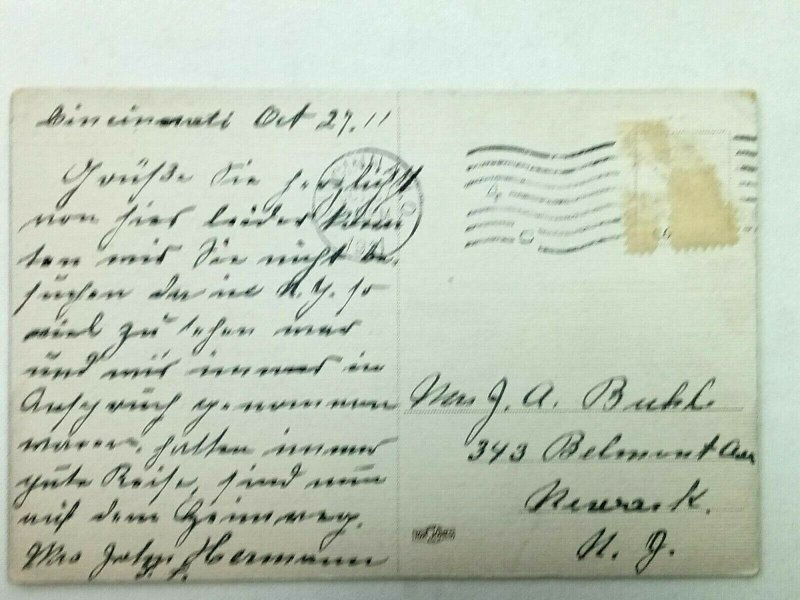 Cincinnati Oct 27. 11
Grüße Sie herzlichst
von hier leider konn
ten wir Sie nicht be-
suchen da in N. Y. so
viel zu sehen war
und wir immer in
Anspruch genommen
waren, hatten immer
gute Reise, sind nun
auf dem Heimweg.
Hermann
Mrs J. A. Buhl
343 Belmont Ave
Newark.
N. J.